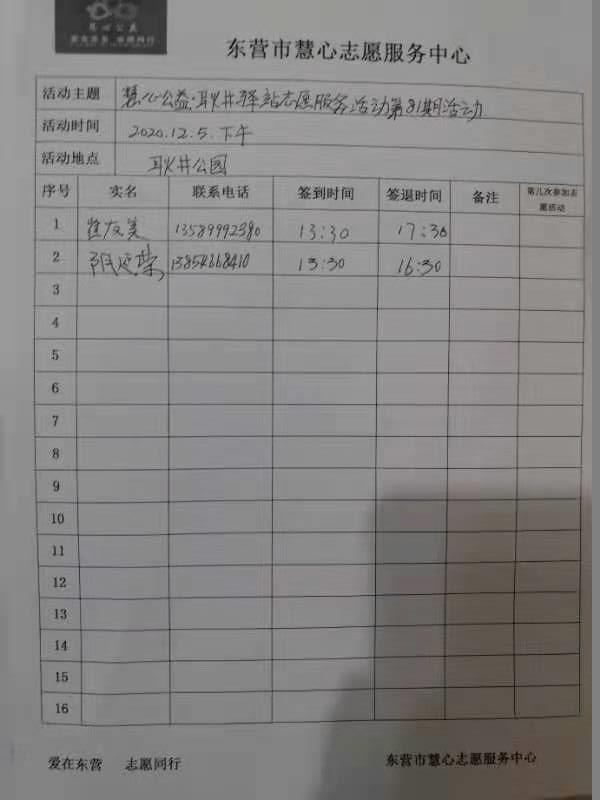 慧心公益
爱在东营 志愿同行
东营市慧心志愿服务中心
活动主题 慧心公益·耿井驿站志愿服务活动第81期活动
活动时间 2020.12.5.下午
活动地点 耿井公园
序号 实名 联系电话 签到时间 签退时间 备注 第几次参加志
愿活动
1 崔友美 13589992380 13:30 17:30
2 延荣 13854668410 13:30 16:30
3
4
5
6
7
8
9
10
11
12
13
14
15
16
爱在东营 志愿同行 东营市慧心志愿服务中心